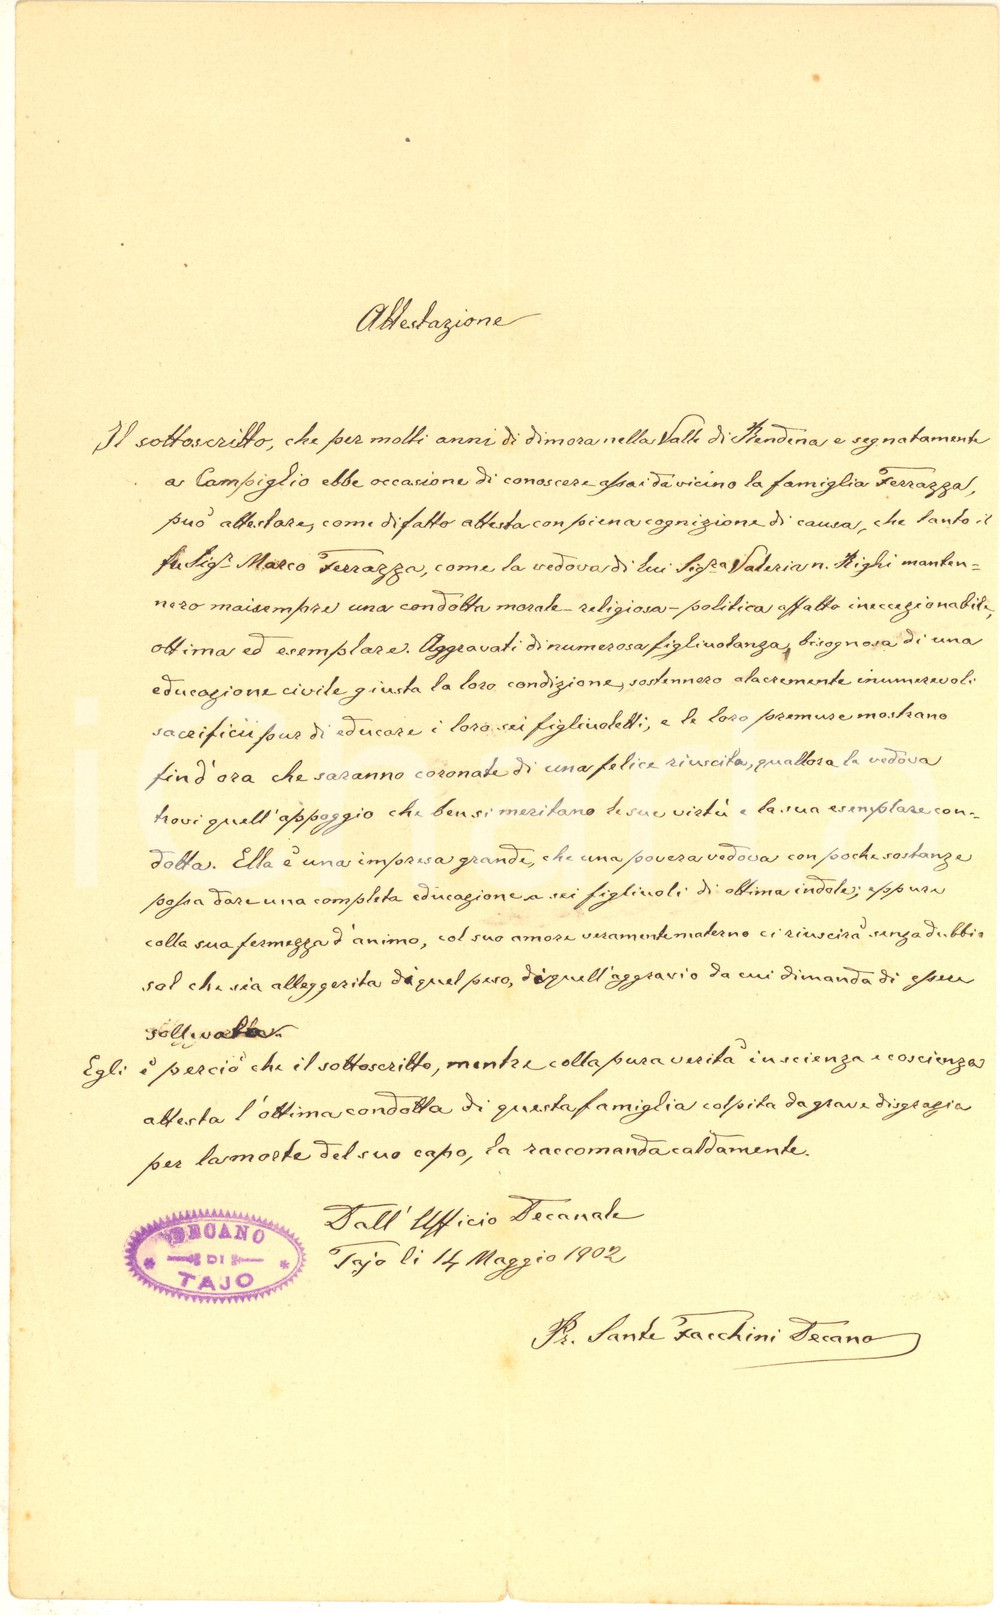 Attestazione
Il sottoscritto, che per molti anni di dimora nella Valle di Rendena e segnatamente
a Campiglio ebbe occasione di conoscere assai da vicino la famiglia Ferrazza,
può attestare, come difatto attesta con piena cognizione di causa, che tanto il
fu Sigr. Marco Ferrazza, come la vedova di lui Sigra Valeria n. Righi manten=
nero maisempre una condotta morale-religiosa-politica affatto ineccezionabile,
ottima ed esemplare. Aggravati di numerosa figliuolanza, bisognosa di una
educazione civile giusta la loro condizione, sostennero alacremente inumerevoli
sacrificii pur di educare i loro sei figliuoletti, e le loro premure mostrano
fin d'ora che saranno coronate di una felice riuscita, quallora la vedova
trovi quell'appoggio che ben si meritano le sue virtù e la sua esemplare con=
dotta. Ella è una impresa grande, che una povera vedova con poche sostanze
possa dare una completa educazione a sei figliuoli di ottima indole; eppure
colla sua fermezza d'animo, col suo amore veramente materno ci riuscirà senza dubbio
sol che sia alleggerita di quel peso, di quell'aggravio da cui dimanda di esser
sollevata.
Egli è perciò che il sottoscritto, mentre colla pura verità in scienza e coscienza
attesta l'ottima condotta di questa famiglia colpita da grave disgrazia
per la morte del suo capo, la raccomanda caldamente.
Dall' Ufficio Decanale
Tajo li 14 Maggio 1902
DECANO
DI
TAJO
Pr. Sante Facchini Decano